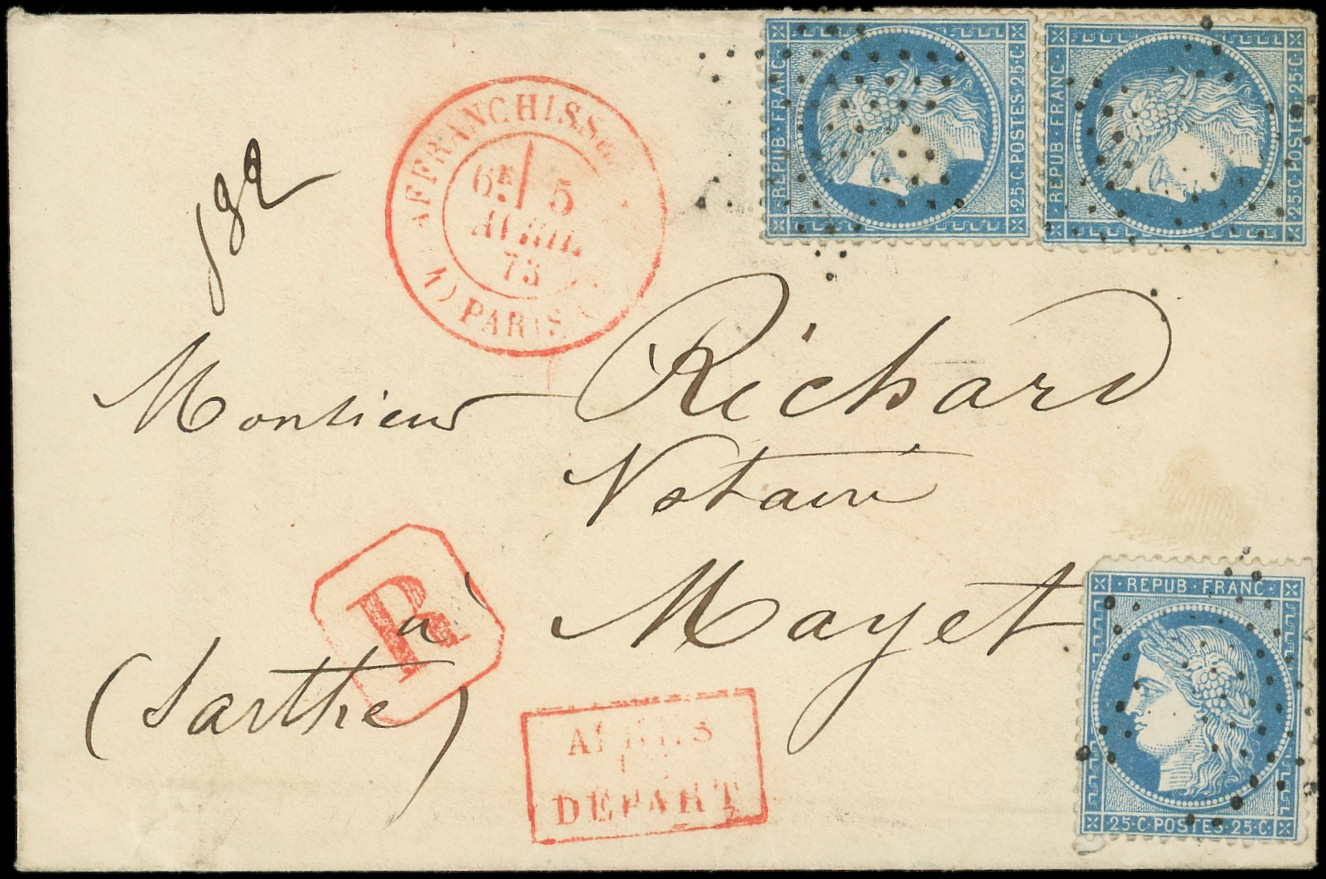 REPUB·FRANC·
25·C·POSTES·25·C·
REPUB·FRANC·
25·C·POSTES·25·C·
AFFRANCHISS
6E 5
AVRIL
73
PARIS
182
Monsieur Richard
Notaire
R
à Mayet
(Sarthe)
APRÈS
LE
DÉPART
REPUB·FRANC·
25·C·POSTES·25·C·